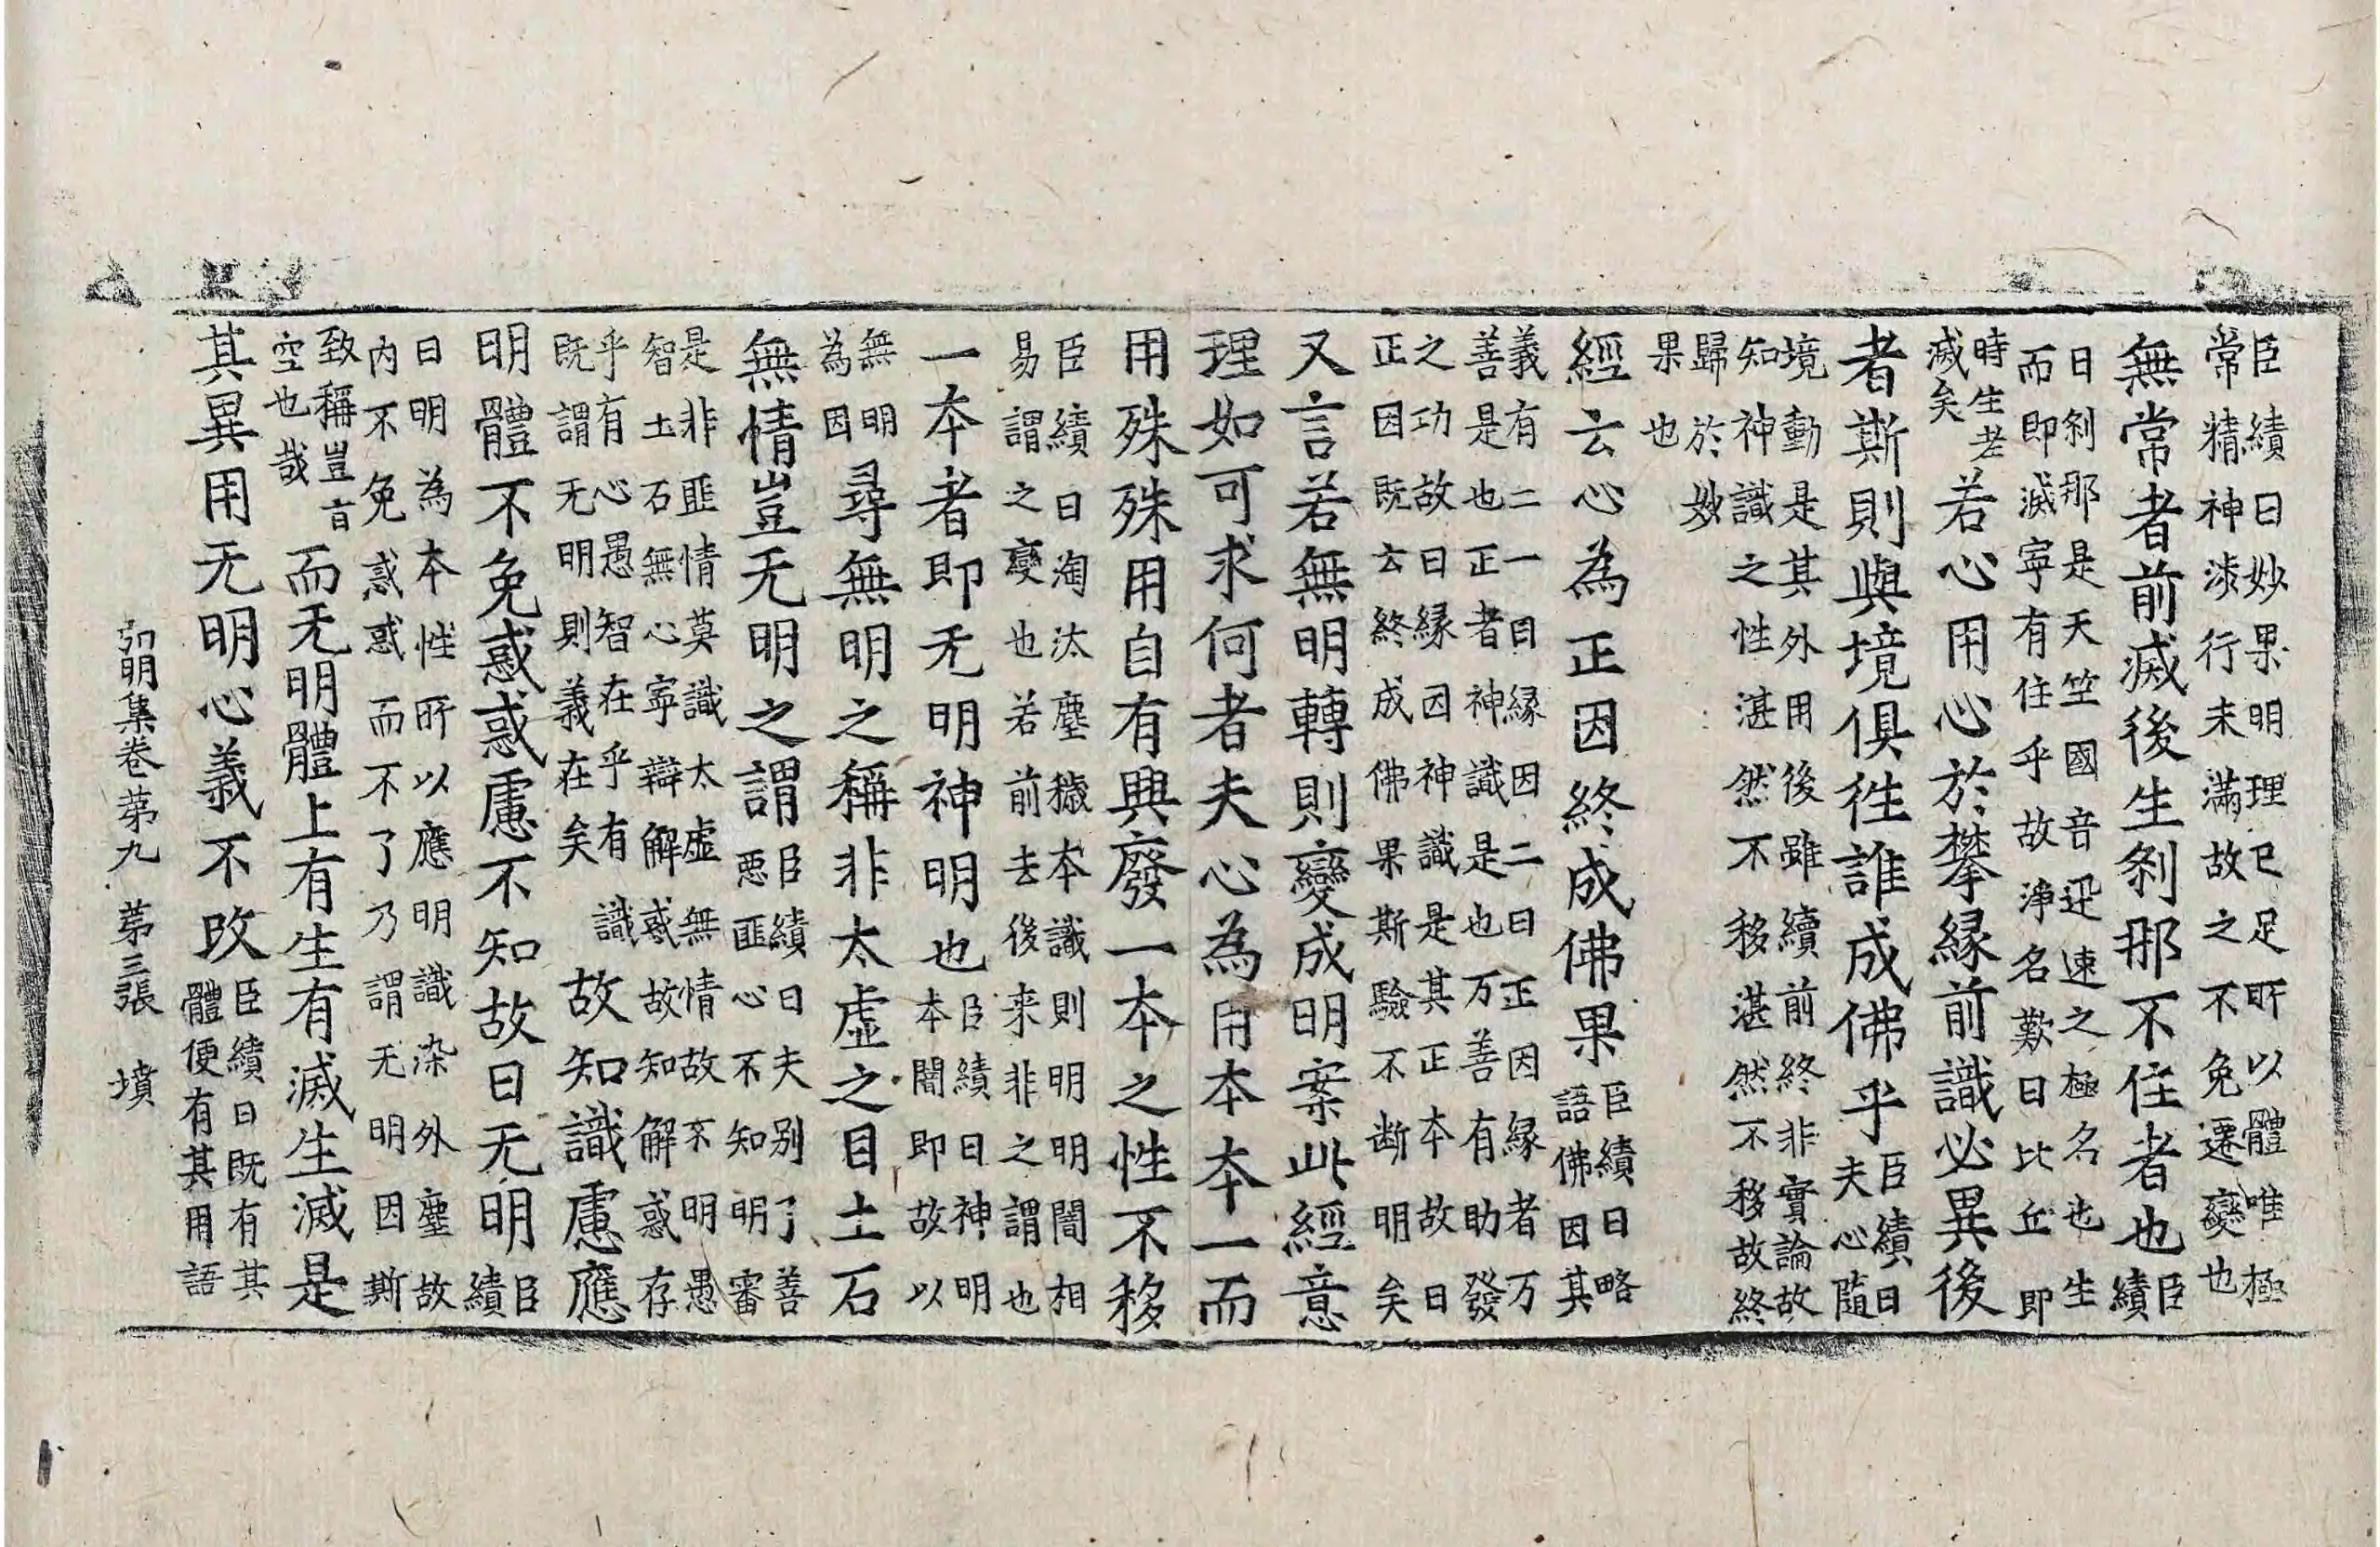 臣績曰妙果明理已足所以體唯極
常精神涉行未滿故之不免遷變也
無常者前滅後生刹那不住者也臣績
曰刹那是天竺國音迅速之極名也生
而即滅寧有住乎故淨名歎曰比丘即
時生老滅矣若心用心於攀緣前識必異後
者斯則與境俱徃誰成佛乎臣績曰夫心隨
境動是其外用後雖續前終非實論故
知神識之性湛然不移湛然不移故終
歸於妙
果也
經云心為正因終成佛果臣績曰略語佛因其
義有二一曰緣因二曰正因緣者万
善是也正者神識是也万善有助發
之功故曰緣因神識是其正本故曰
正因既云終成佛果斯驗不断明矣
又言若無明轉則變成明案此經意
理如可求何者夫心為用本本一而
用殊殊用自有興廢一本之性不移
臣績曰淘汰塵穢本識則明明闇相
易謂之變也若前去後来非之謂也
一本者即无明神明也臣績曰神明本闇即故以
無明為因尋無明之稱非太虛之目土石
無情豈无明之謂臣績曰夫別了善惡匪心不知明審
是非匪情莫識太虛無情故不明愚
智土石無心寧辯解惑故知解惑存
乎有心愚智在乎有識既謂无明則義在矣故知識慮應
明體不免惑惑慮不知故曰无明臣績
曰明為本性所以應明識染外塵故
内不免惑惑而不了乃謂无明因斯
致稱豈旨空也哉而无明體上有生有滅生滅是
其異用无明心義不改臣績曰既有其體便有其用語
弘明集卷第九 第三張 墳